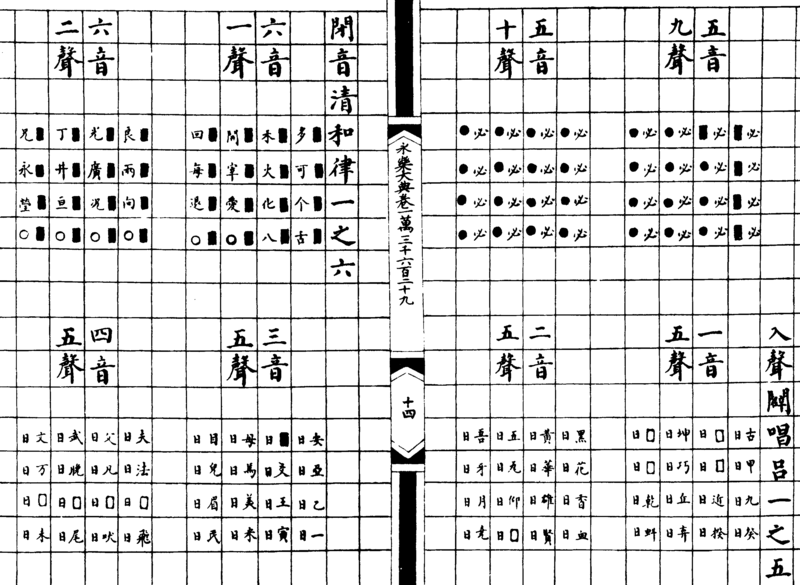 五音
九聲
■必 ■必 ■必 ■必
■必 ●必 ●必 ●必
●必 ●必 ●必 ●必
●必 ●必 ●必 ●必
五音
十聲
●必 ●必 ●必 ●必
●必 ●必 ●必 ●必
●必 ●必 ●必 ●必
●必 ●必 ●必 ●必
入聲闢唱呂一之五
一音
五聲
古日 甲日 九日 癸日
□日 □日 近日 揆日
坤日 巧日 丘日 弃日
□日 □日 乾日 虯日
二音
五聲
黑日 花日 香日 血日
黃日 華日 雄日 賢日
五日 瓦日 仰日 □日
吾日 牙日 月日 堯日
永樂大典卷一萬三千六百二十九
十四
閉音清和律一之六
六音
一聲
■多 ■可 ■个 ■古
■禾 ■火 ■化 ■八
■開 ■宰 ■愛 ■○
■回 ■每 ■退 ■○
六音
二聲
■良 ■兩 ■向 ■○
■光 ■廣 ■況 ■○
■丁 ■井 ■亘 ■○
■兄 ■永 ■瑩 ■○
三音
五聲
安日 亞日 乙日 一日
■日 爻日 王日 寅日
母日 馬日 美日 米日
目日 皃日 眉日 民日
四音
五聲
夫日 法日 □日 飛日
父日 凡日 □日 吠日
武日 晚日 □日 尾日
文日 万日 □日 未日